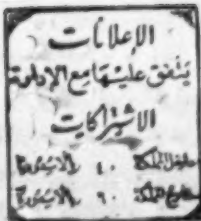 الإعلانات
يتفق عليها مع الإدارة
الاشتراكات
داخل المملكة ٤٠
خارج المملكة ٩٠